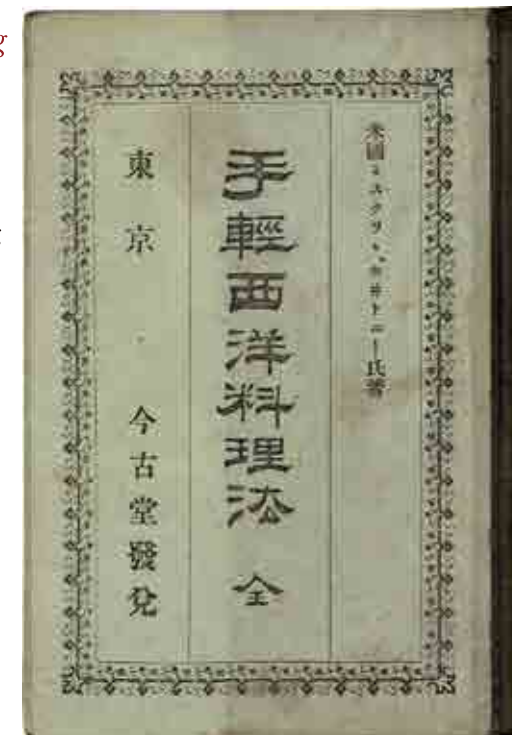 米國ミスクララ、ホ井トニー氏著
手輕西洋料理法 全
東京 今古堂發兌